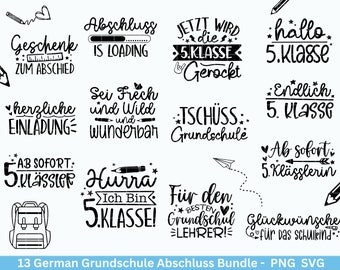 Geschenk
ZUM ABSCHIED
Abschluss
IS LOADING
JETZT WIRD
die
5.KLASSE
Gerockt
hallo
5.KLASSE
herzliche
EINLADUNG
Sei Frech
und Wild
und
wunderbar
TSCHÜSS
Grundschule
Endlich
5. KLASSE
AB SOFORT
5.KLÄSSLER
Hurra
Ich Bin
5.KLASSE!
Für den
BESTEN
Grundschul
LEHRER!
Ab sofort
5.Klässlerin
Glückwünsche
für DAS SCHULKIND
13 German Grundschule Abschluss Bundle - PNG SVG